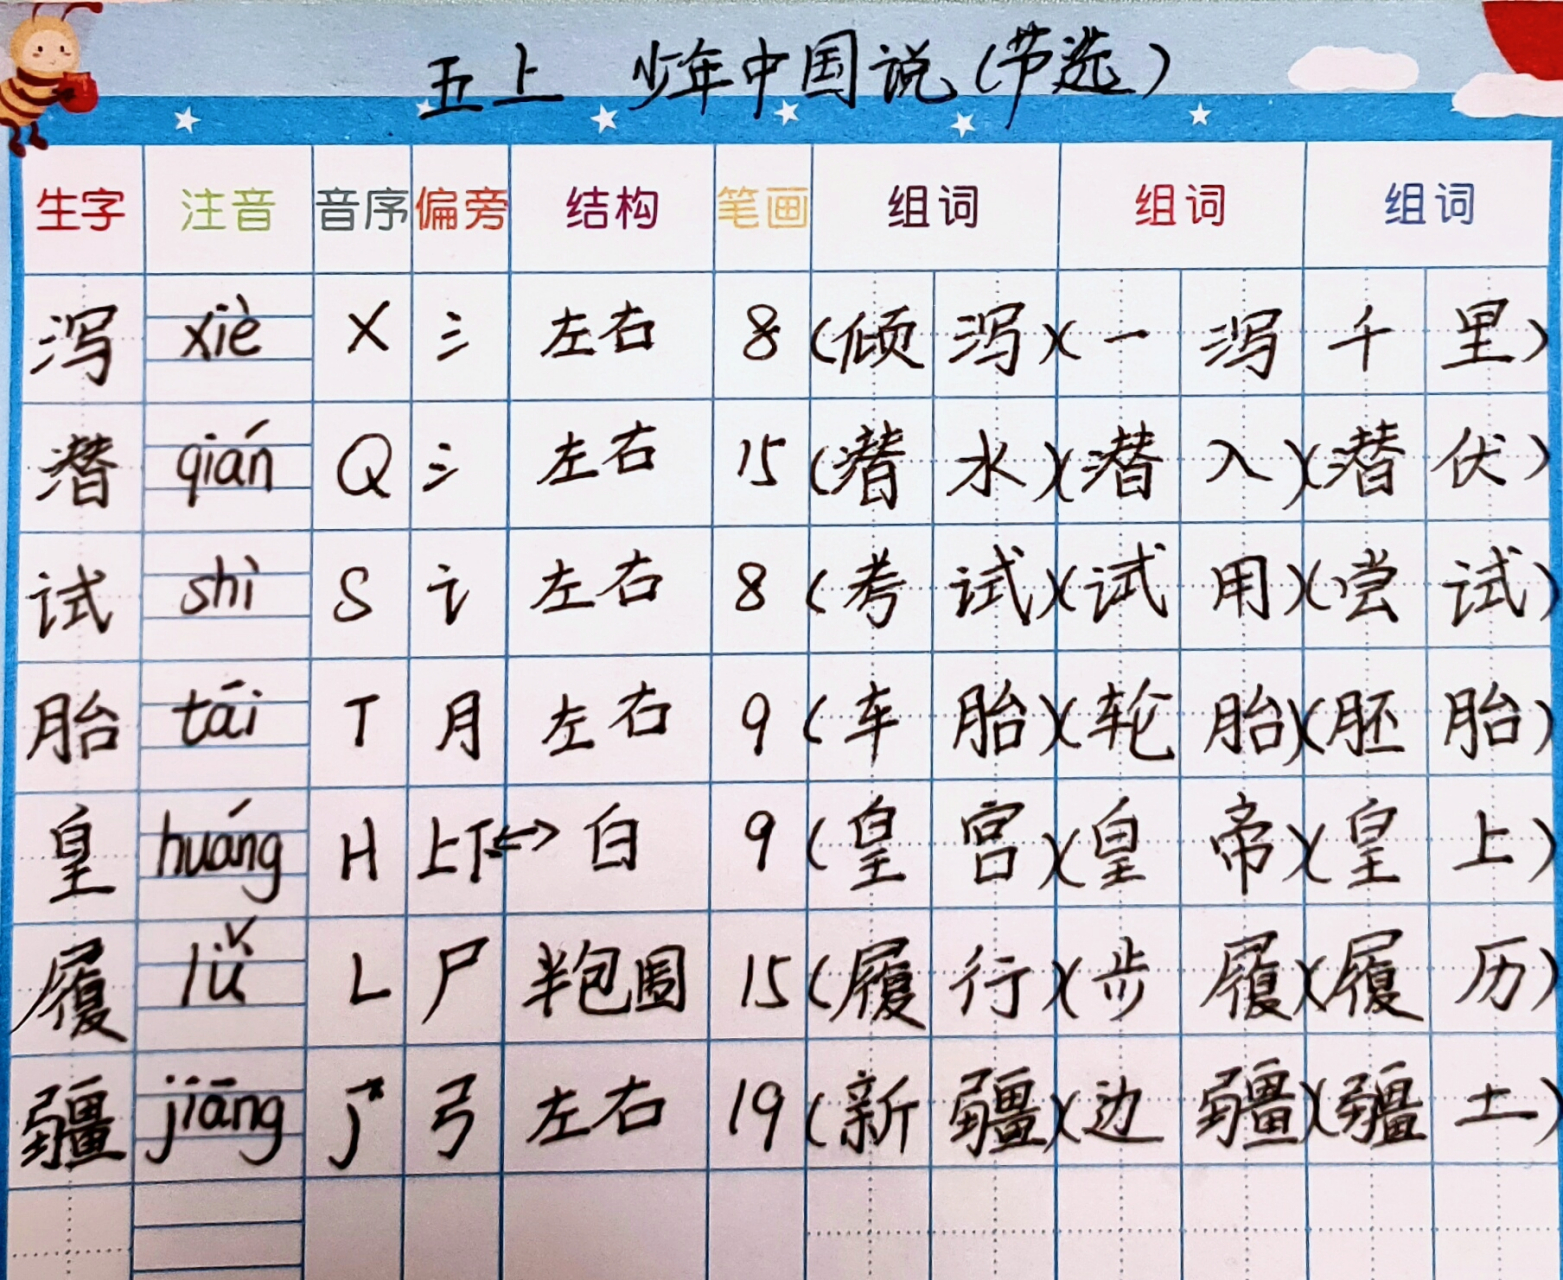 五上 少年中国说(节选)
生字 注音 音序 偏旁 结构 笔画 组词 组词 组词
泻 xiè X 氵 左右 8 (倾泻)(一泻千里)
潜 qián Q 氵 左右 15 (潜水)(潜入)(潜伏)
试 shì S 讠 左右 8 (考试)(试用)(尝试)
胎 tāi T 月 左右 9 (车胎)(轮胎)(胚胎)
皇 huáng H 上下 ↔ 白 9 (皇宫)(皇帝)(皇上)
履 lǚ L 尸 半包围 15 (履行)(步履)(履历)
疆 jiāng J 弓 左右 19 (新疆)(边疆)(疆土)